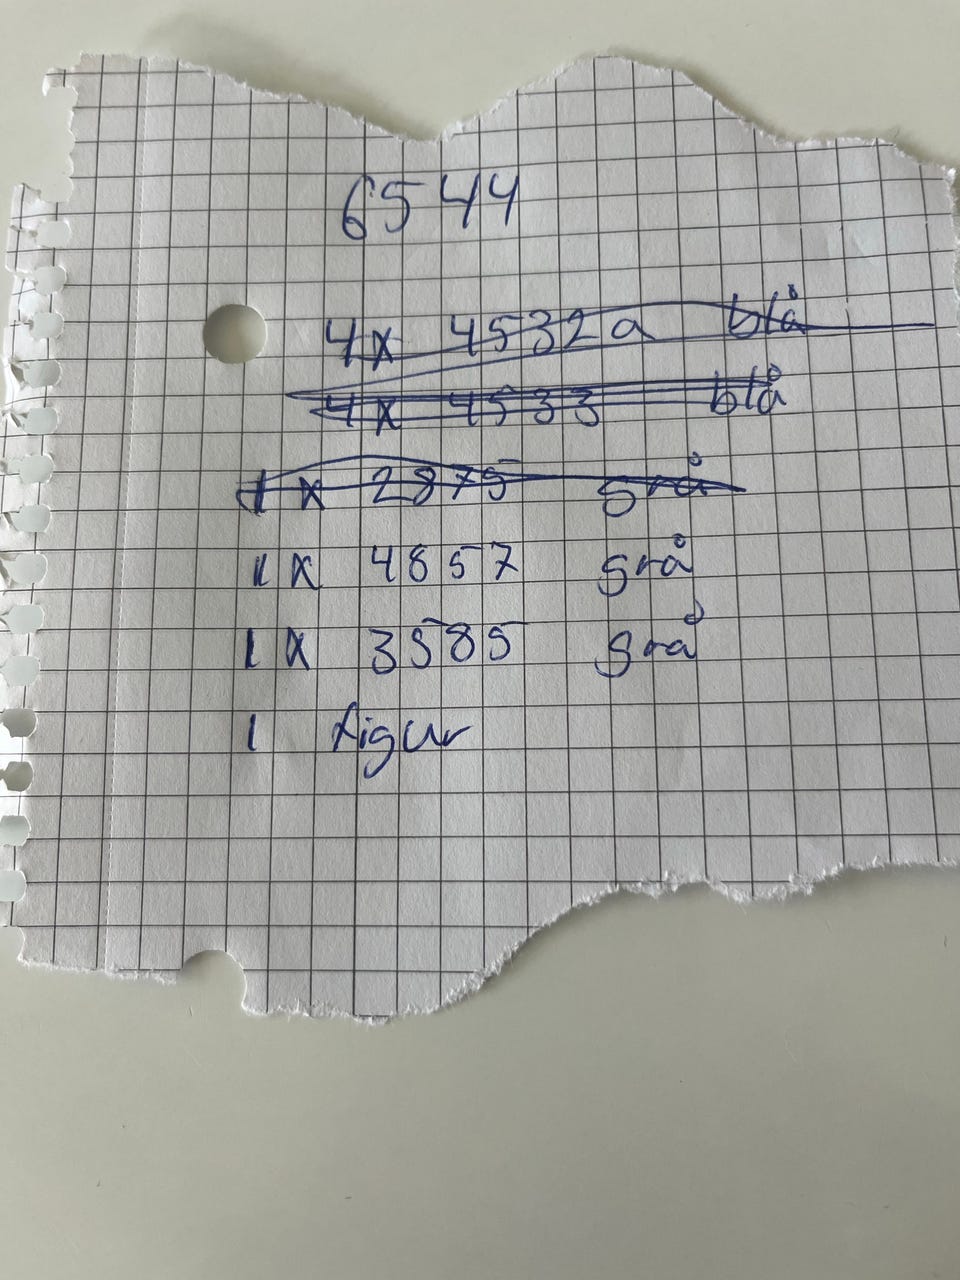 6544
4x 4532a blå
4x 4533 blå
1x 2875 grå
1x 4857 grå
1x 3585 grå
1 figur